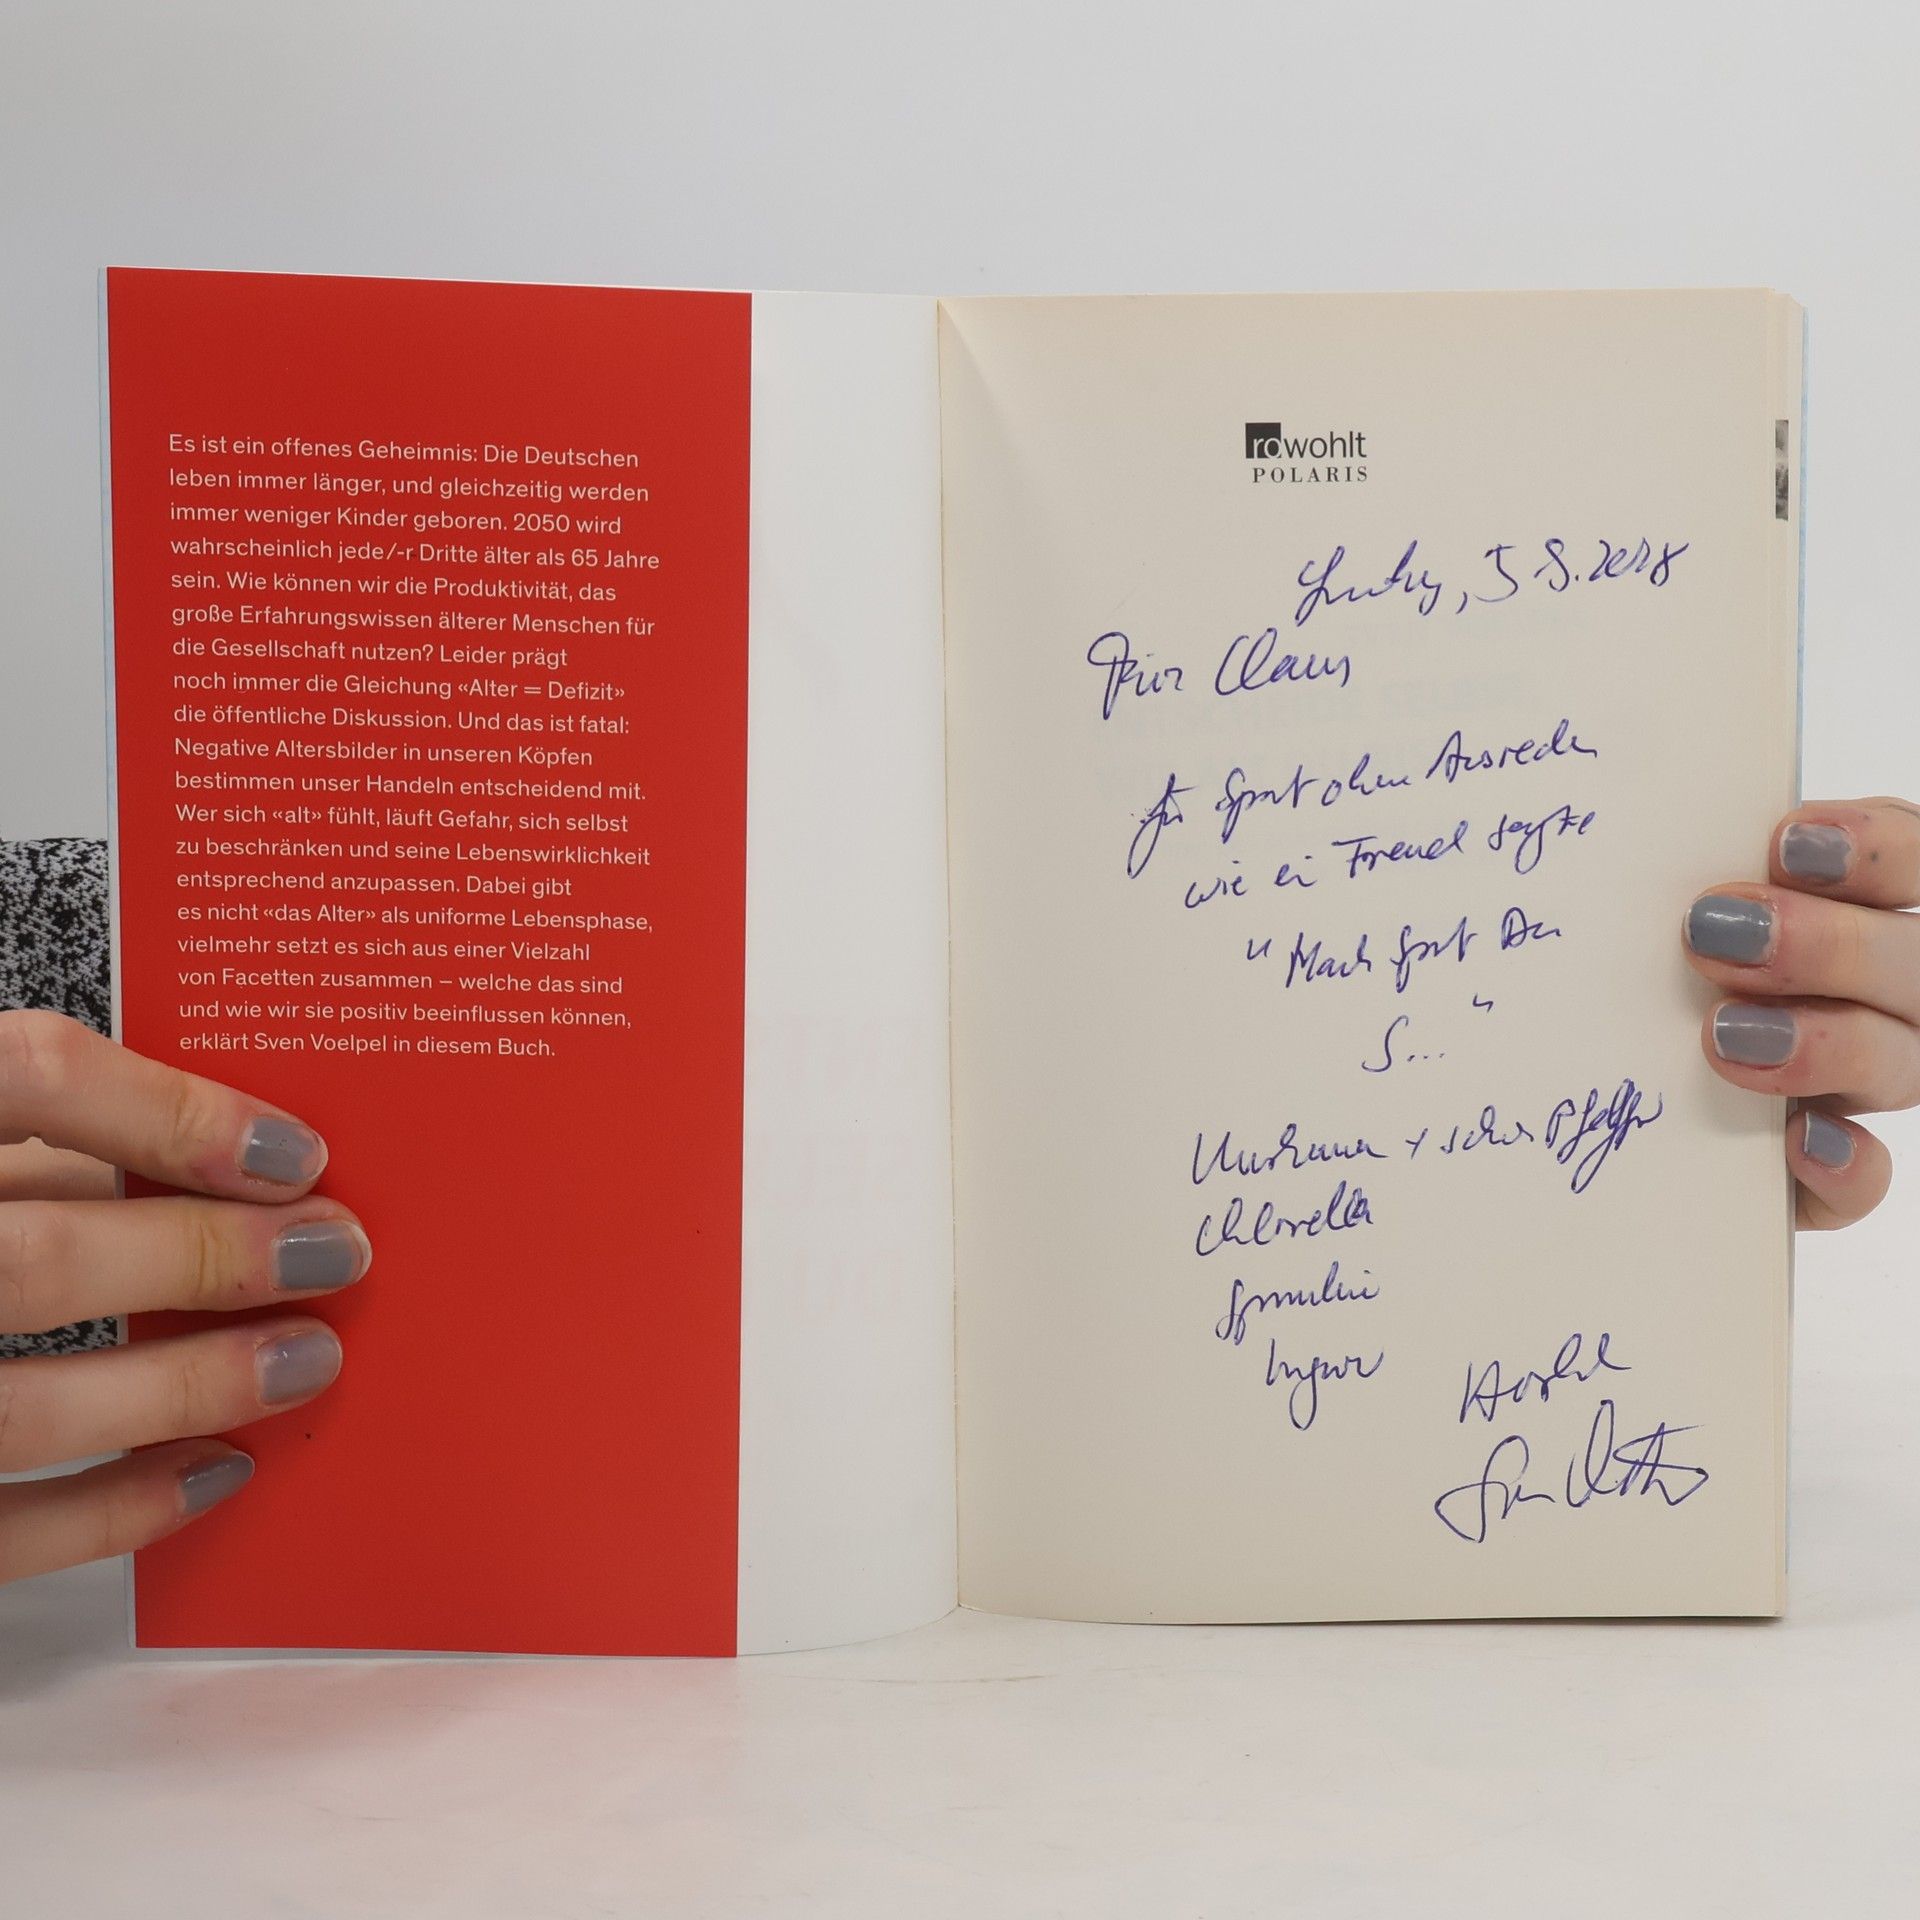 Es ist ein offenes Geheimnis: Die Deutschen
leben immer länger, und gleichzeitig werden
immer weniger Kinder geboren. 2050 wird
wahrscheinlich jede/-r Dritte älter als 65 Jahre
sein. Wie können wir die Produktivität, das
große Erfahrungswissen älterer Menschen für
die Gesellschaft nutzen? Leider prägt
noch immer die Gleichung «Alter = Defizit»
die öffentliche Diskussion. Und das ist fatal:
Negative Altersbilder in unseren Köpfen
bestimmen unser Handeln entscheidend mit.
Wer sich «alt» fühlt, läuft Gefahr, sich selbst
zu beschränken und seine Lebenswirklichkeit
entsprechend anzupassen. Dabei gibt
es nicht «das Alter» als uniforme Lebensphase,
vielmehr setzt es sich aus einer Vielzahl
von Facetten zusammen – welche das sind
und wie wir sie positiv beeinflussen können,
erklärt Sven Voelpel in diesem Buch.
rowohlt
POLARIS
Für Claus
Sport ohne Ausreden
wie ein Freund sagte
"Mach Sport Du
S..."
Kurkuma + schw. Pfeffer
Chlorella
Spirulina
Ingwer